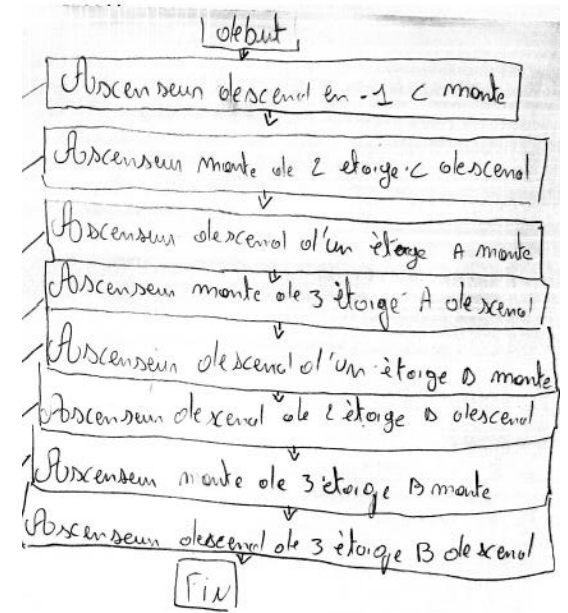 debut
Ascenseur descend en -1 C monte
Ascenseur monte de 2 etage C descend
Ascenseur descend d'un ètage A monte
Ascenseur monte de 3 ètage A descend
Ascenseur descend d'un ètage D monte
Ascenseur descend de 2 ètage D descend
Ascenseur monte de 3 ètage B monte
Ascenseur descend de 3 ètage B descend
Fin